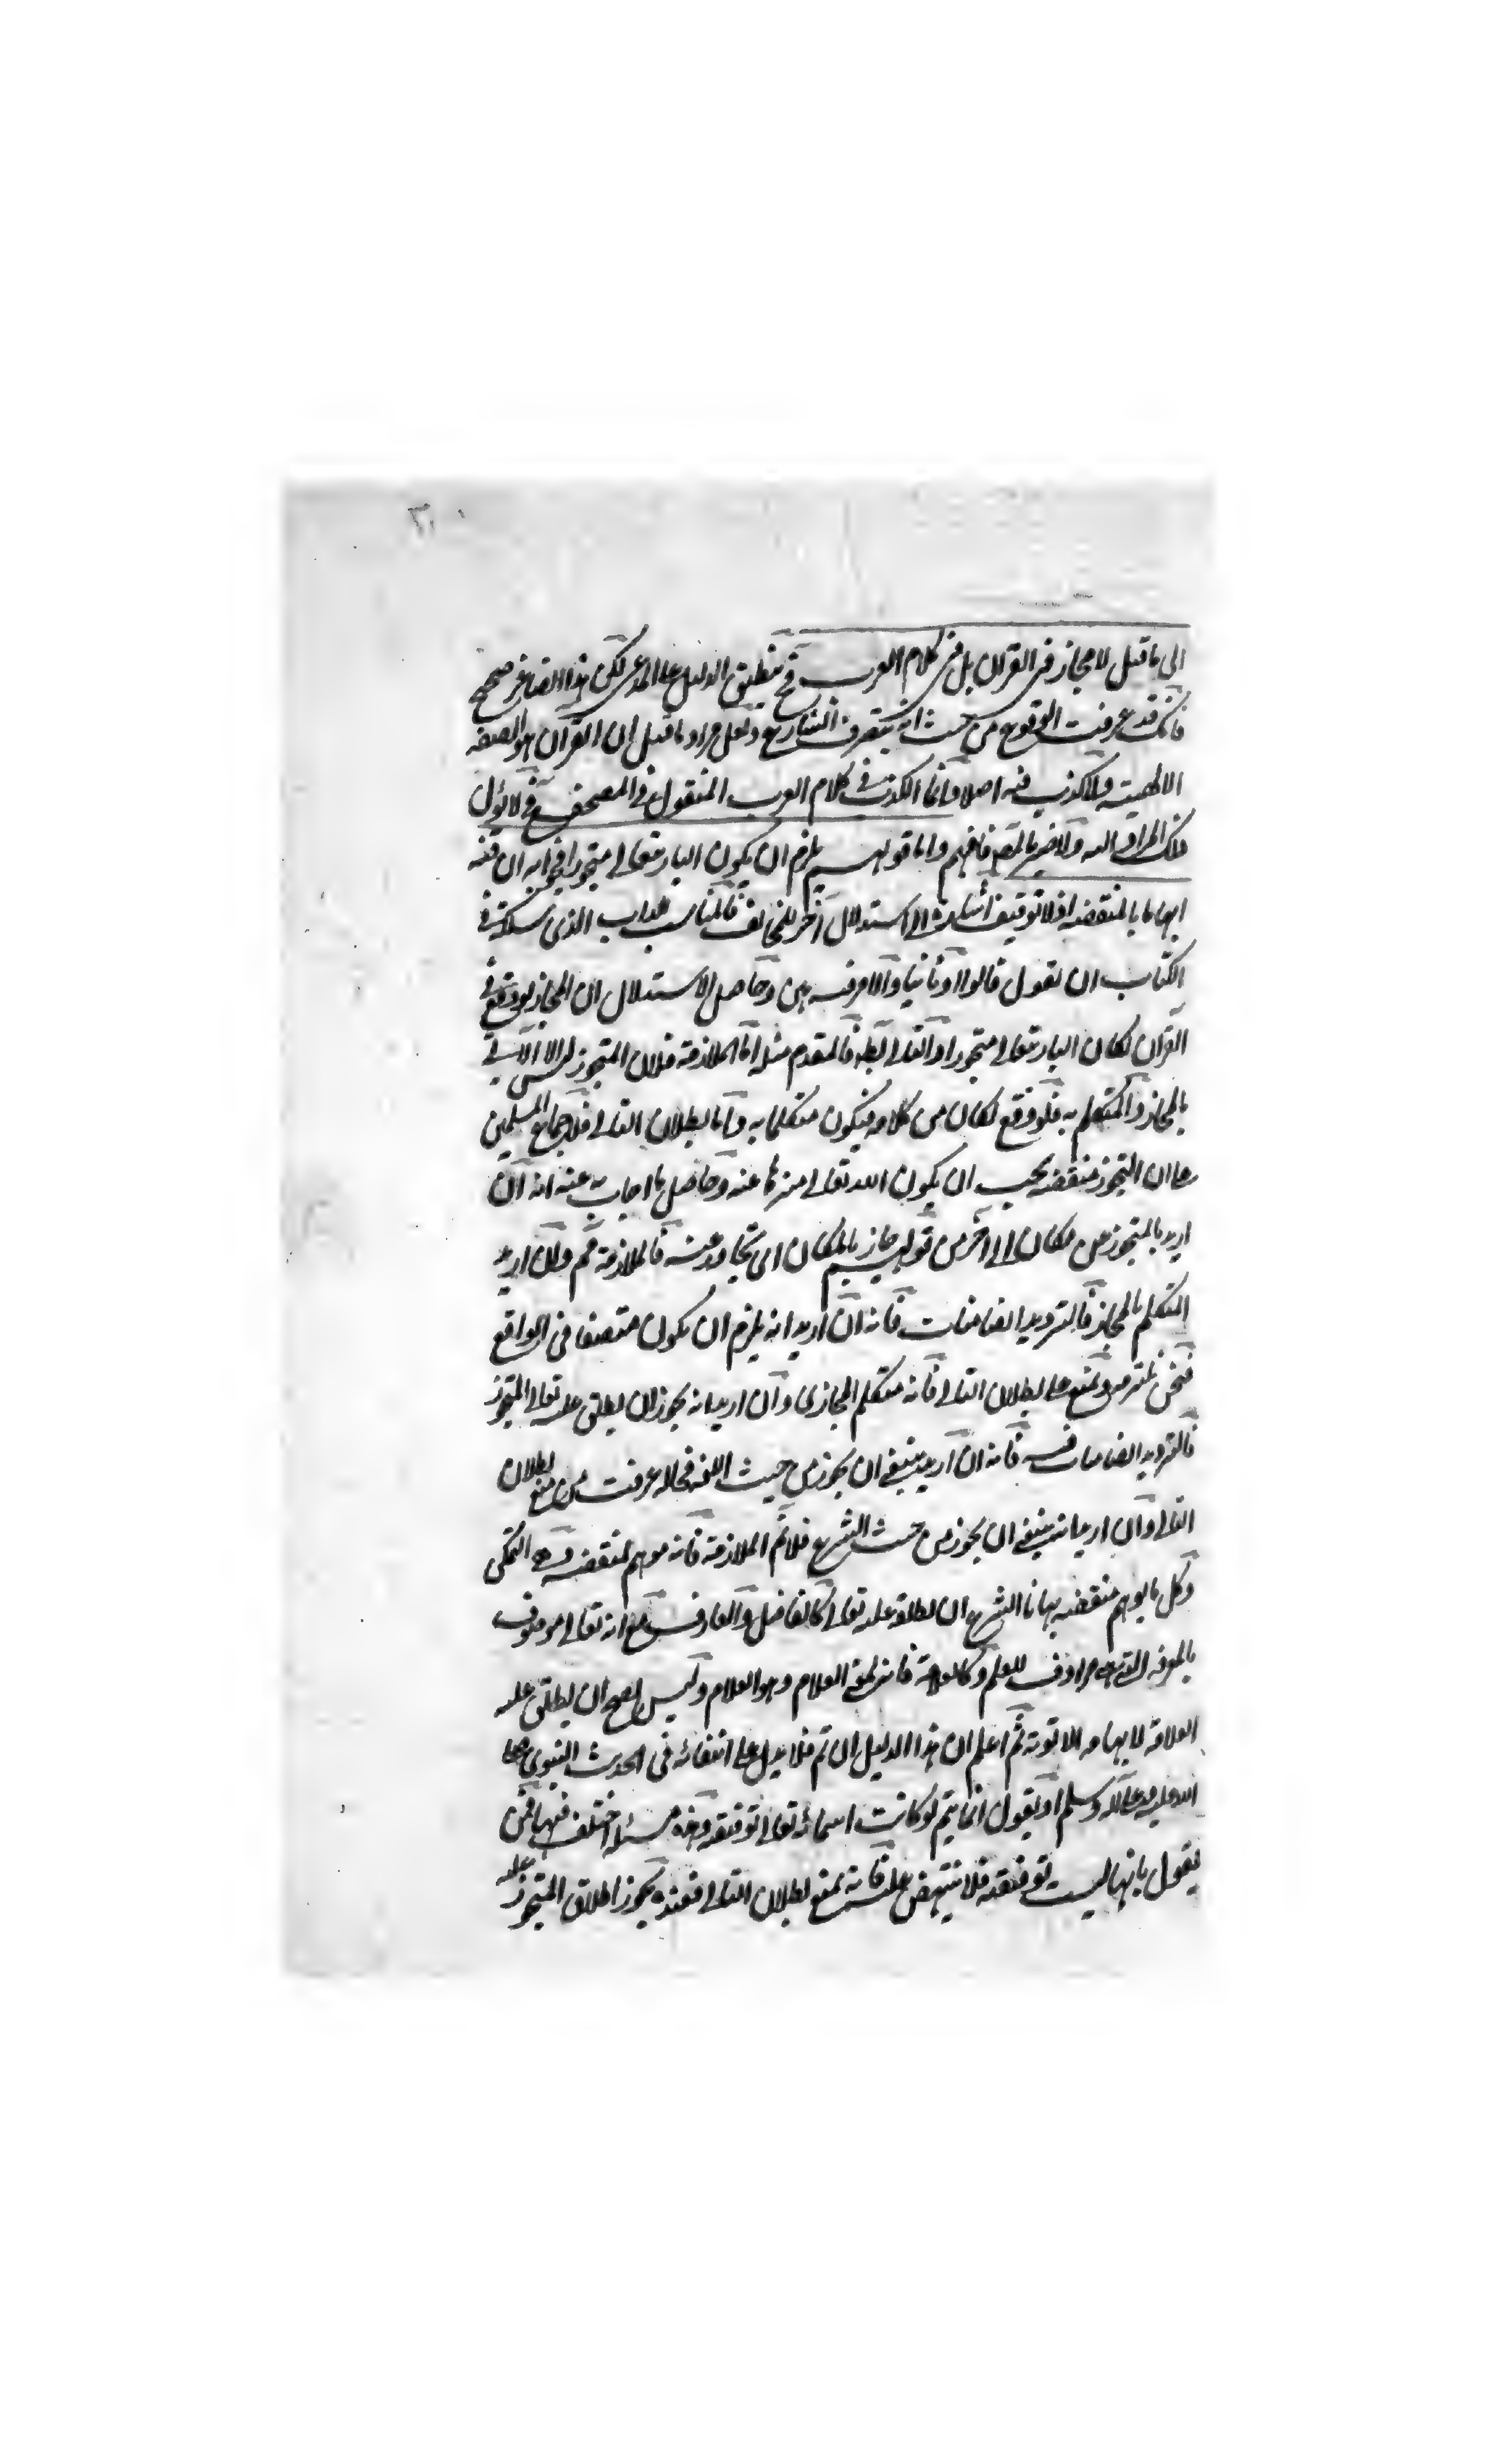 الى ما قيل لا مجاز فى القرآن بل فى كلام العرب فح ينطبق الدليل على المدعى لكن هذا ايضا غير صحيح
فانك قد عرفت الوقوع من حيث انه يتصرف الشارع ولعل مراد ما قيل ان القرآن هو الصفة
الالهية ولا كذب فيه اصلا وانما الكذب فى كلام العرب المنقول فى المصحف
فافهم واما قولهم يلزم ان يكون البارى تعالى متجوزا فجوابه ان فيه
ايهاما بالمنقصة او لا توقيف اشارة الى استدلال آخر للمخالف فالمناسب الذى سلكه فى
الكتاب ان نقول قالوا وثانيا والامر فيه هين وحاصل الاستدلال ان المجاز لو وقع فى
القرآن لكان البارى تعالى متجوزا والتالى بط فالمقدم مثله اما الملازمة فلان المتجوز ليس الا الآتى
بالمجاز والمتكلم به فلو وقع لكان من كلامه فيكون متكلما به واما بطلان التالى فلاجماع المسلمين
على ان التجوز منقصة يجب ان يكون الله تعالى منزها عنه وحاصل ما اجاب به عنه انه ان
اريد بالمتجوز من مكان الى آخر من قولهم جاز بالمكان اى تجاوز عنه فالملازمة مم وان اريد
المتكلم بالمجاز فالترديد ايضا فانه ان اريد انه يلزم ان يكون متصفا فى الواقع
فنحن نلتزمه ونمنع بطلان التالى فانه متكلم المجازى وان اريد انه يجوز ان يطلق عليه تعالى المتجوز
فالترديد ايضا فيه فانه ان اريد ينبغى ان يجوز من حيث اللغة فحاله عرفت من منع بطلان
التالى وان اريد انه ينبغى ان يجوز من حيث الشرع فلا نم الملازمة فانه موهم لمنقصة
وكل ما يوهم منقصة نهانا الشرع ان نطلقه عليه تعالى كالفاضل والعارف مع انه تعالى موصوف
بالمعرفة التى هى مرادف للعلم وكالعلامة فانه بمعنى العلام وهو العلام وليس يصح ان يطلق عليه
العلامة لايهامه الانوثة ثم اعلم ان هذا الدليل ان تم فلا يدل على انتفائه فى الحديث النبوى صلى
الله عليه وعلى آله وسلم او نقول انما يتم لو كانت اسمائه تعالى توقيفية وهذه مسئلة اختلف فيها فمن
يقول بانها ليست توقيفية فلا ينتهض عليه فانه يمنع بطلان التالى فعنده يجوز اطلاق المتجوز عليه